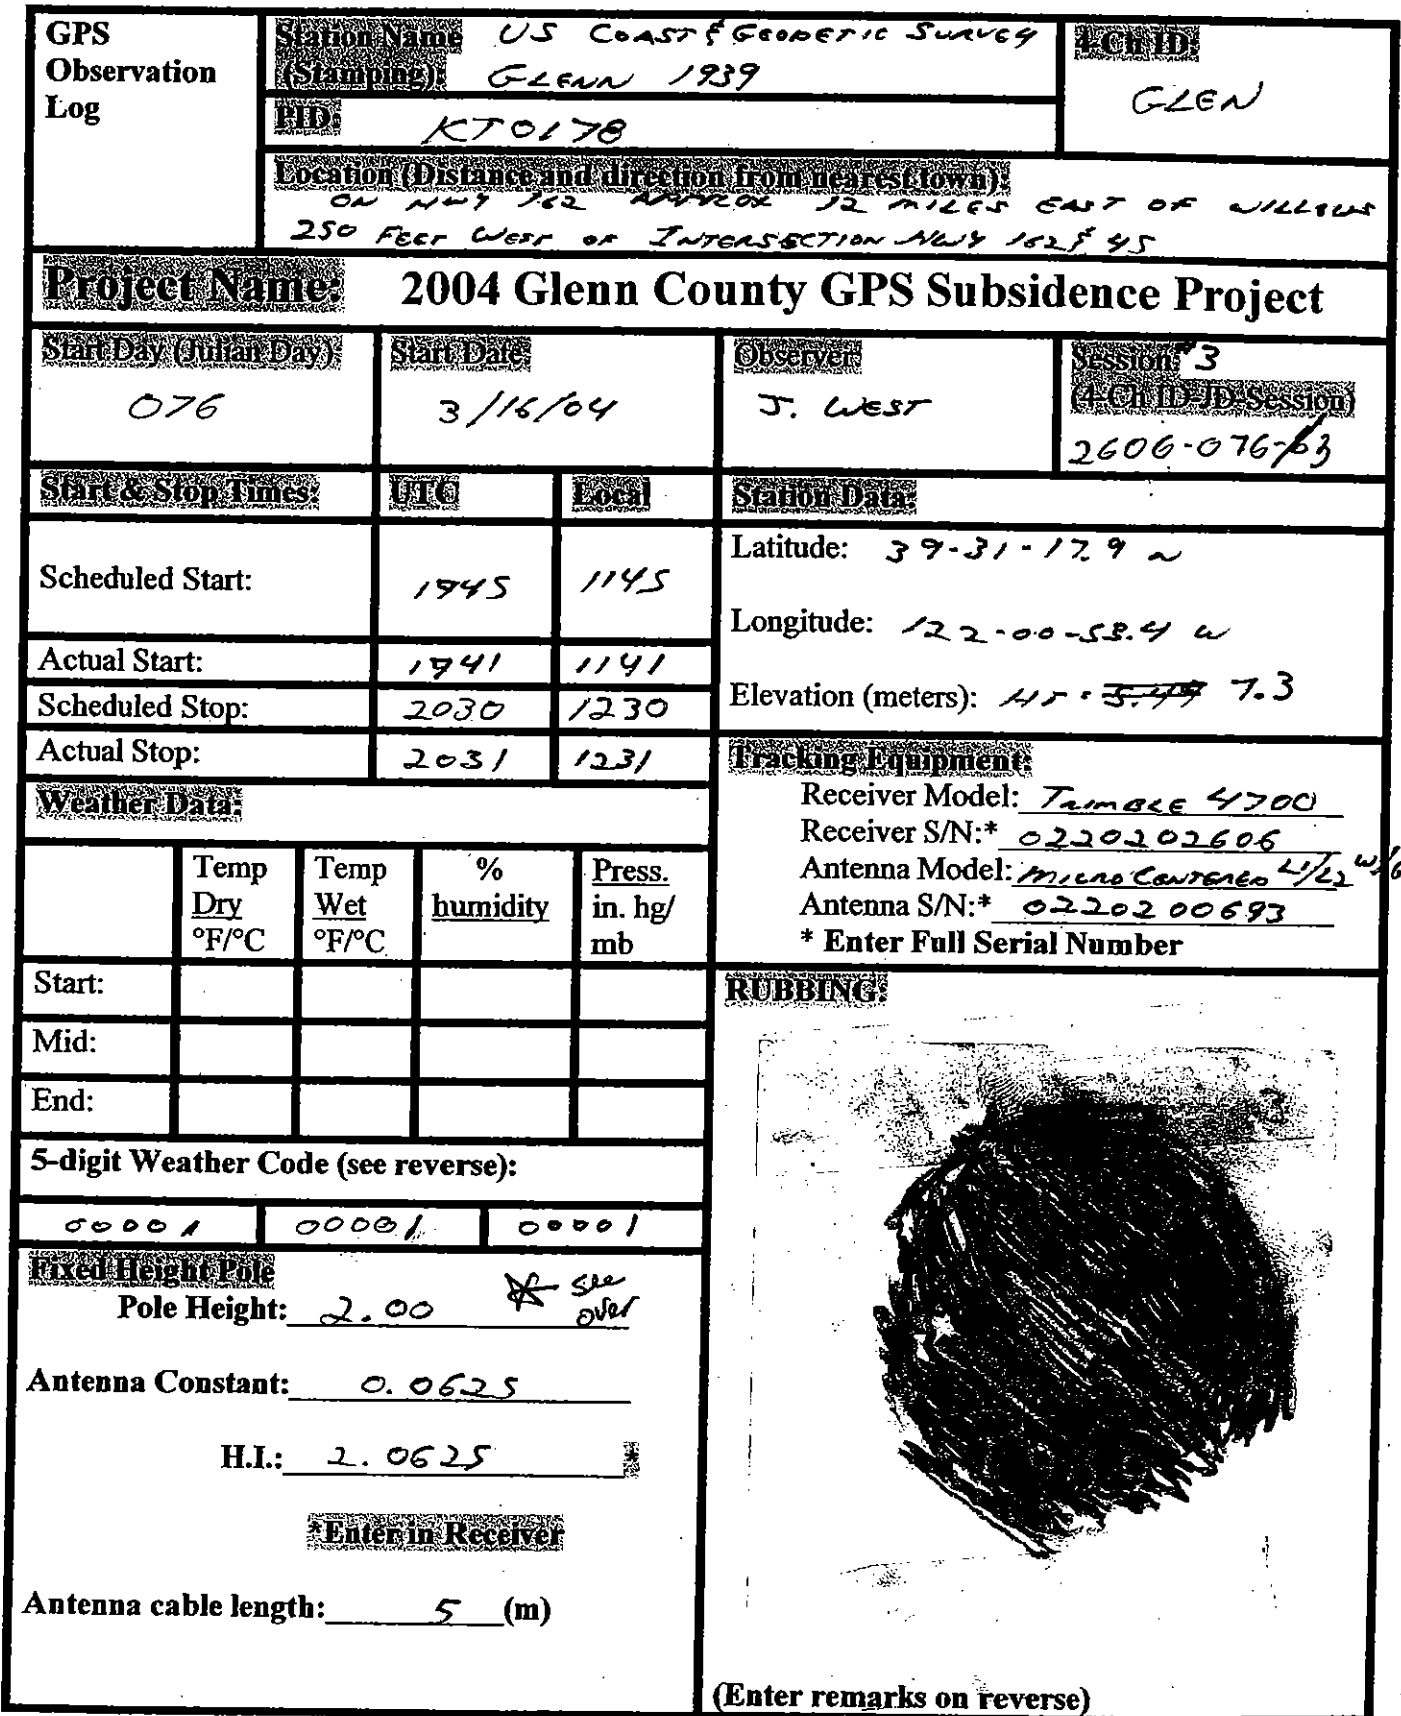 GPS
Observation
Log
Station Name US COAST & GEODETIC SURVEY
(Stamping): GLENN 1939
4-Ch ID:
GLEN
PID: KT0178
Location (Distance and direction from nearest town):
ON HWY 162 APPROX 12 MILES EAST OF WILLOWS
250 FEET WEST OF INTERSECTION HWY 162 & 45
Project Name: 2004 Glenn County GPS Subsidence Project
Start Day (Julian Day):
076
Start Date:
3/16/04
Observer:
J. WEST
Session: #3
(4-Ch ID-JD-Session)
2606-076-3
Start & Stop Times: UTC Local
Scheduled Start: 1945 1145
Actual Start: 1941 1141
Scheduled Stop: 2030 1230
Actual Stop: 2031 1231
Station Data:
Latitude: 39-31-17.9 N
Longitude: 122-00-53.4 W
Elevation (meters): 7.3
Tracking Equipment:
Receiver Model: TRIMBLE 4700
Receiver S/N:* 0220202606
Antenna Model: MICRO CENTERED L1/L2 W/G
Antenna S/N:* 0220200693
* Enter Full Serial Number
Weather Data:
Temp Dry °F/°C
Temp Wet °F/°C
% humidity
Press. in. hg/ mb
Start:
Mid:
End:
5-digit Weather Code (see reverse):
00001 00001 00001
Fixed Height Pole
Pole Height: 2.00 see over
Antenna Constant: 0.0625
H.I.: 2.0625 *
*Enter in Receiver
Antenna cable length: 5 (m)
RUBBING:
(Enter remarks on reverse)